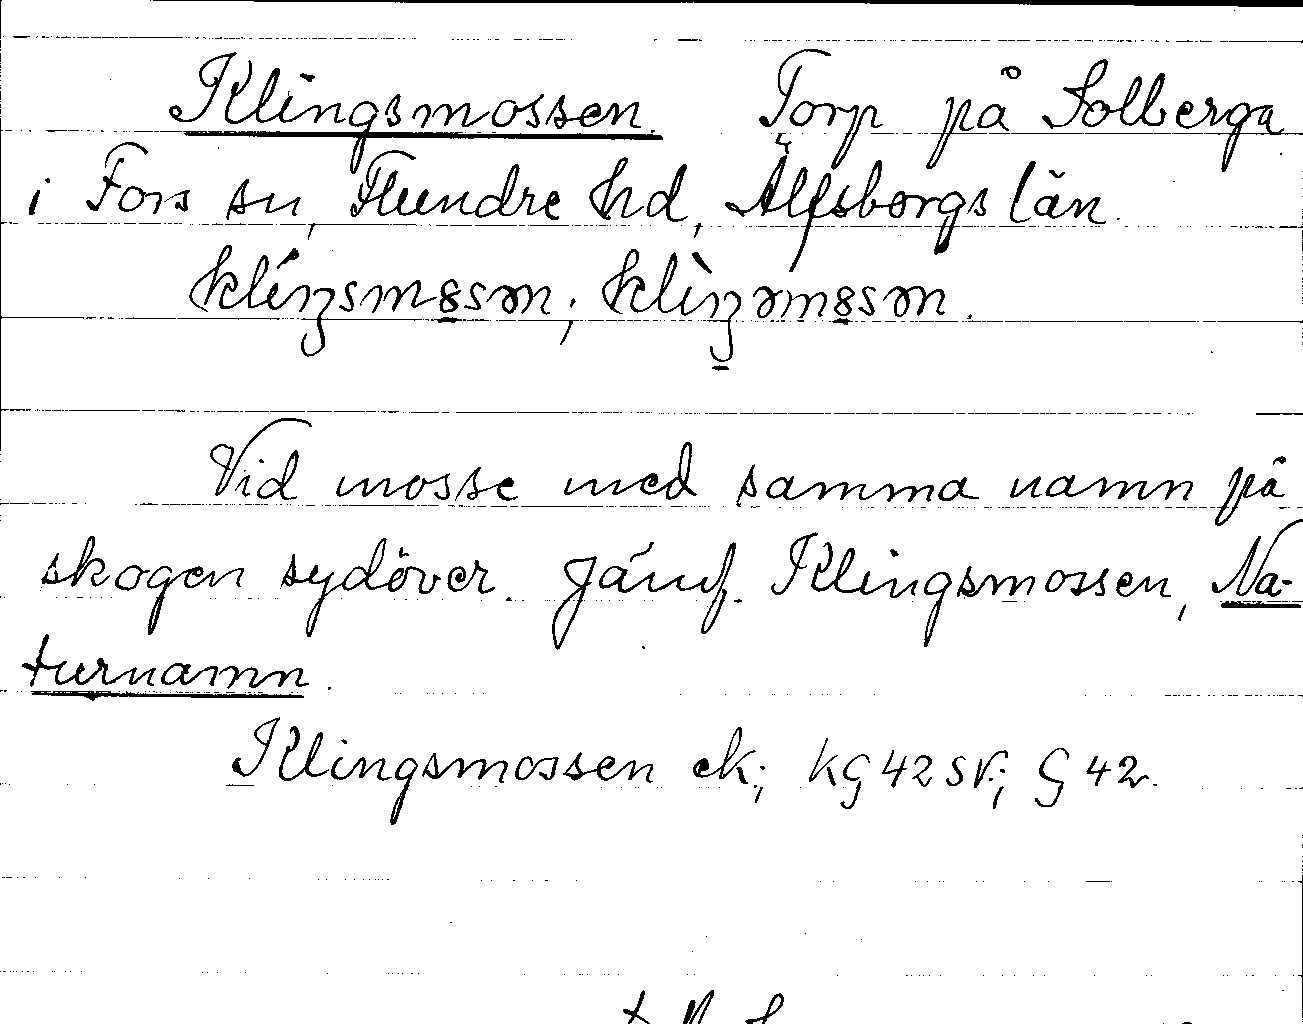 Klingsmossen. Torp på Solberga
i Fors sn, Flundre hd, Älfsborgs län.
klíŋsmo̤sən; klìŋəmo̤sən.
Vid mosse med samma namn på
skogen sydöver. Jämf. Klingsmossen, Na-
turnamn.
Klingsmossen ek; KG 42 SV.; G 42.